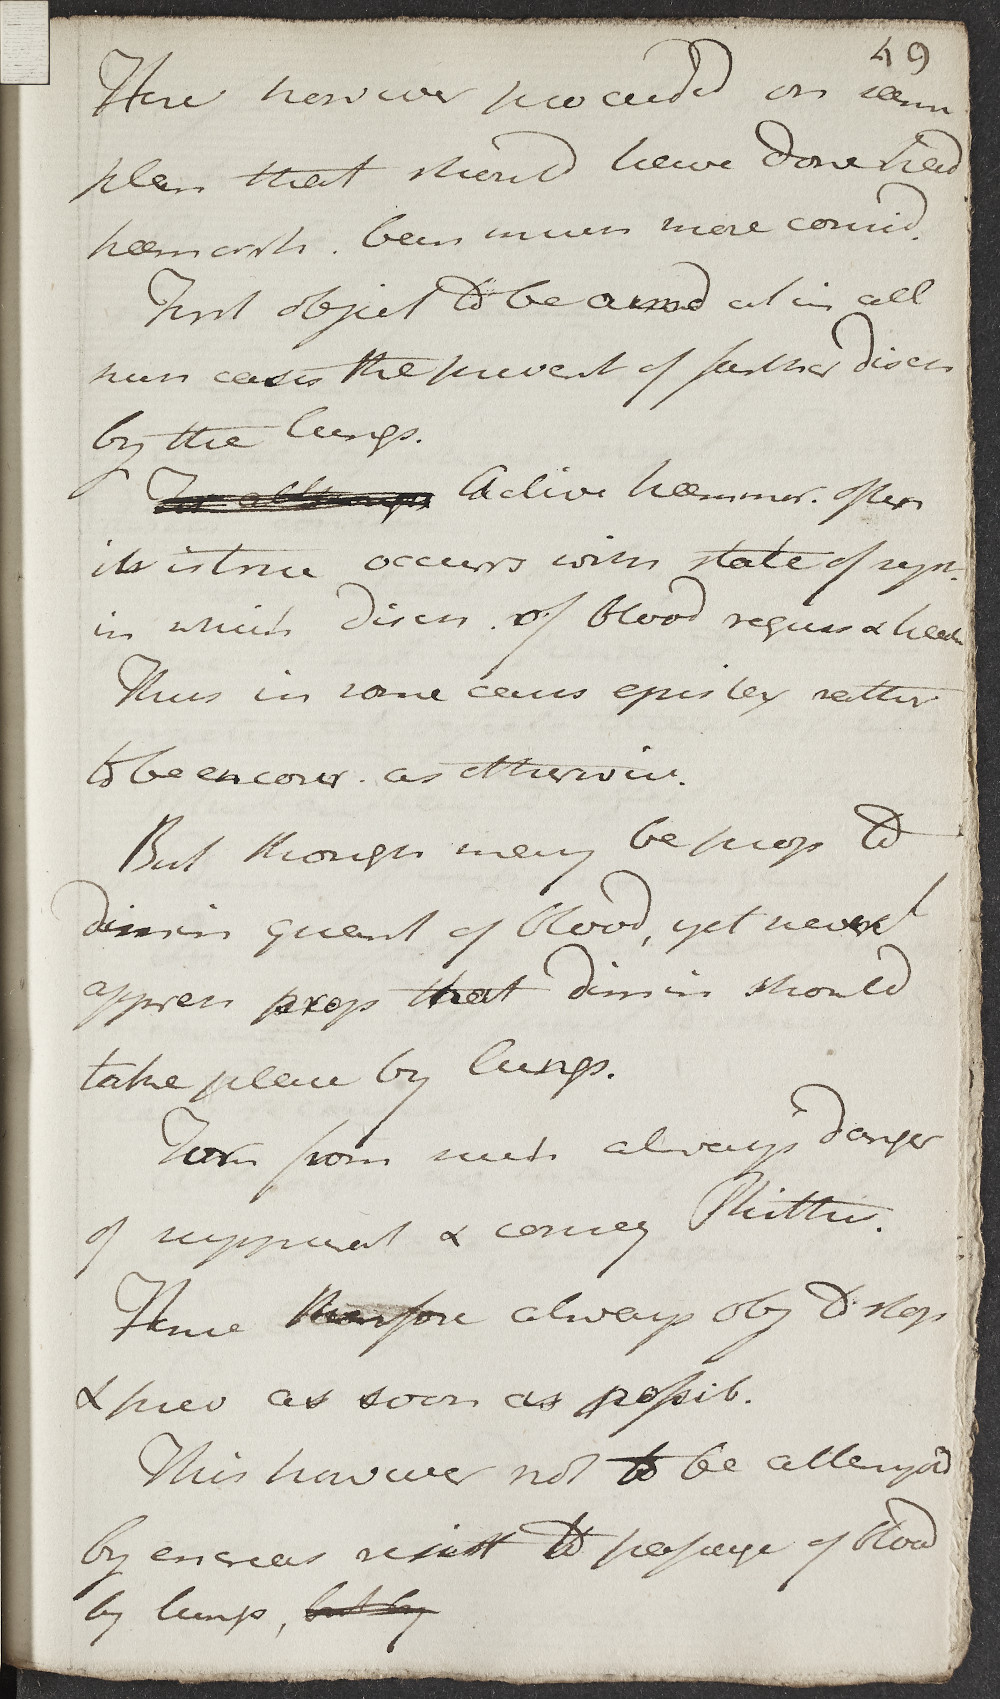 49
Here however proceeded on same
plan that should have done had
hæmorrh. been much more consid.
First object to be aimed at in all
such cases the prevent of further disch
by the lungs.
Active hæmorr. often
it is true occurs with state of syst.
in which disch. of blood requis &
Thus in some cases epistax rather
to be encour. as otherwise.
But though may be prop to
dimin quant of blood, yet never
appreh prop that dimin should
take place by lungs.
from such always danger
of suppurat & conseq Phthis.
Hence therefore always obj to stop
& prev as soon as possib.
This however not to be attempd
by encreas resist to passage of blood
by lungs, but by